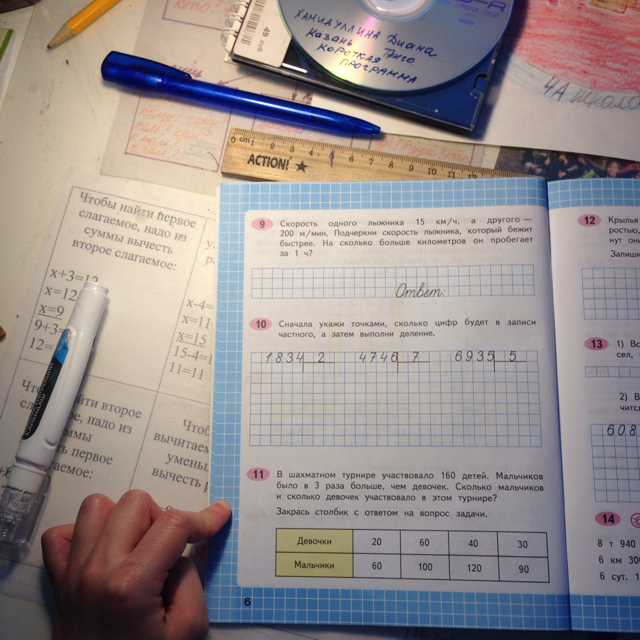 ХАМИДУЛЛИНА Диана
Казань Танго
КОРОТКАЯ
ПРОГРАММА
49
4А
ACTION!
0 cm 1 2 3 4 5 6 7 8 9 10 11 12 13
Чтобы найти первое
слагаемое, надо из
суммы вычесть
второе слагаемое:
x+3=12
x=12
x=9
9+3=
12=
x-4=
x=11
x=15
15-4=1
11=11
йти второе
е, надо из
ммы
ь первое
аемое:
Чтоб
вычитаем
уменьш
вычесть р
9 Скорость одного лыжника 15 км/ч, а другого —
200 м/мин. Подчеркни скорость лыжника, который бежит
быстрее. На сколько больше километров он пробегает
за 1 ч?
Ответ:
10 Сначала укажи точками, сколько цифр будет в записи
частного, а затем выполни деление.
1834 2 4746 7 6935 5
11 В шахматном турнире участвовало 160 детей. Мальчиков
было в 3 раза больше, чем девочек. Сколько мальчиков
и сколько девочек участвовало в этом турнире?
Закрась столбик с ответом на вопрос задачи.
Девочки 20 60 40 30
Мальчики 60 100 120 90
6
12 Крылья
ростью,
нут они
Запиши
13 1) Вс
сел,
2) В
чится
608
14
8 т 940
6 км 30
6 сут. 1